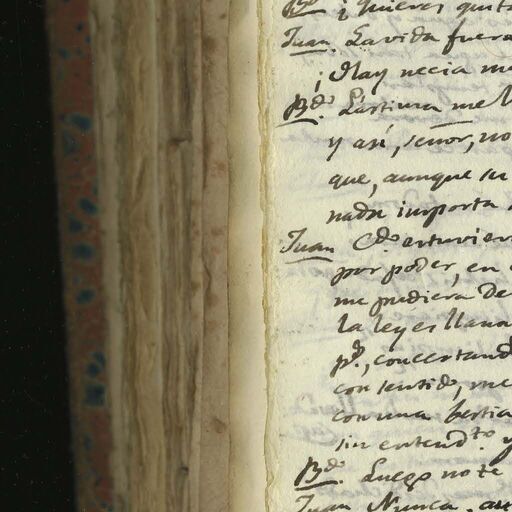 B.do ¿Quieres quita
Juan. La vida fuera
¡Hay necia me
B.do Lástima me
y así, señor, no
que, aunque su
nada importa
Juan C.do estuvier
por poder, en
me pudiera de
la ley es llana
p.r, concertand
consentido, me
con una bestia
sin entend.to y
B.do Luego no te
Juan Nunca